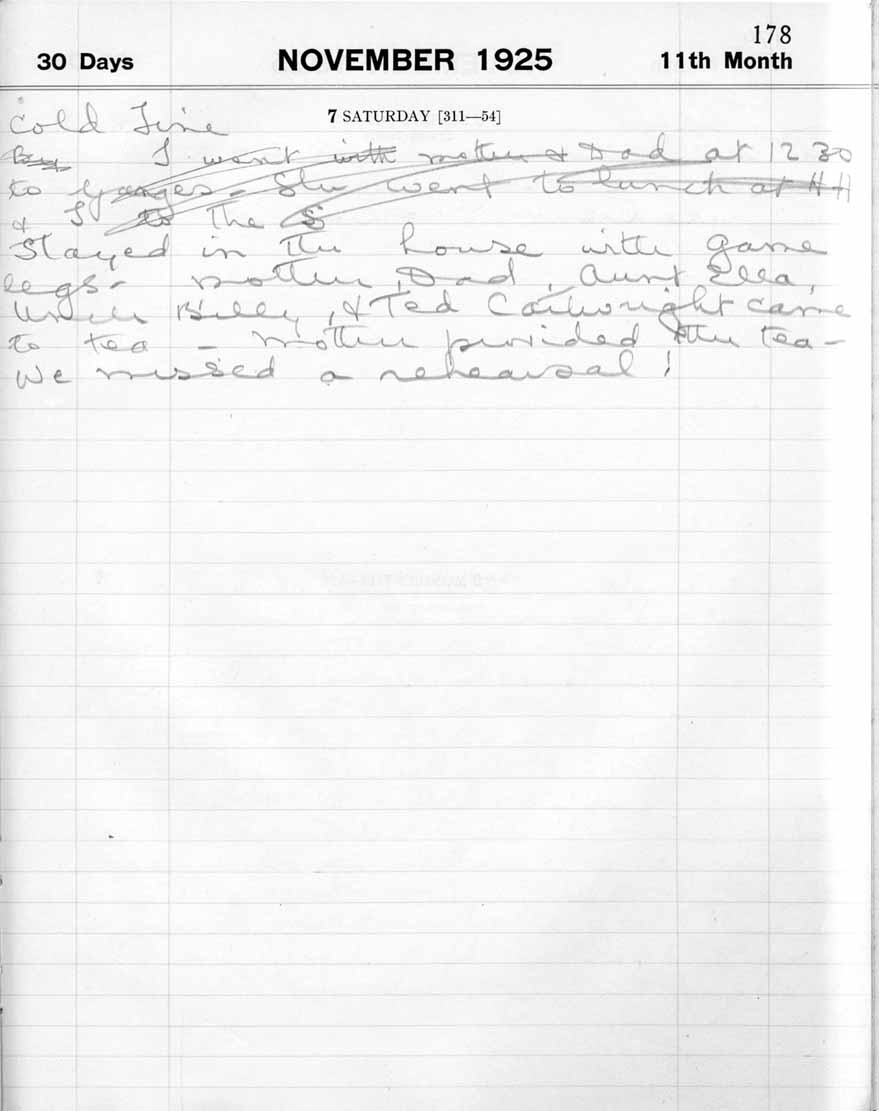 178
30 Days NOVEMBER 1925 11th Month
7 SATURDAY [311—54]
Cold Fine
I went with mother & Dad at 12 30
to Ganges - She went to lunch at HH
& I to the S
Stayed in the house with game
legs - mother, Dad, Aunt Ella,
Uncle Billy, & Ted Cartwright came
to tea - mother provided the tea -
We missed a rehearsal!